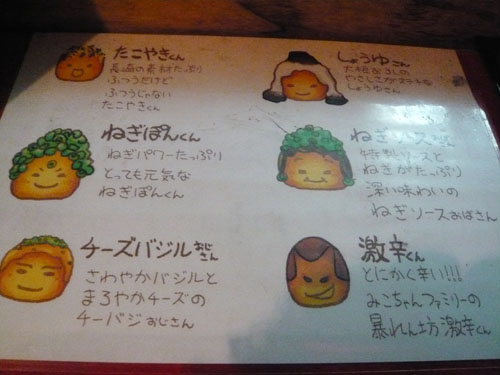 たこやきくん
長崎の素材たっぷり
ふつうだけど
ふつうじゃない
たこやきくん
しょうゆさん
しょうゆさん
ねぎぽんくん
ねぎパワーたっぷり
とっても元気な
ねぎぽんくん
ねぎソース
特製ソースと
ねぎがたっぷり
深い味わいの
ねぎソースおばさん
チーズバジルおじさん
さわやかバジルと
まろやかチーズの
チーバジおじさん
激辛くん
とにかく辛い!!!
みこちゃんファミリーの
暴れん坊激辛くん